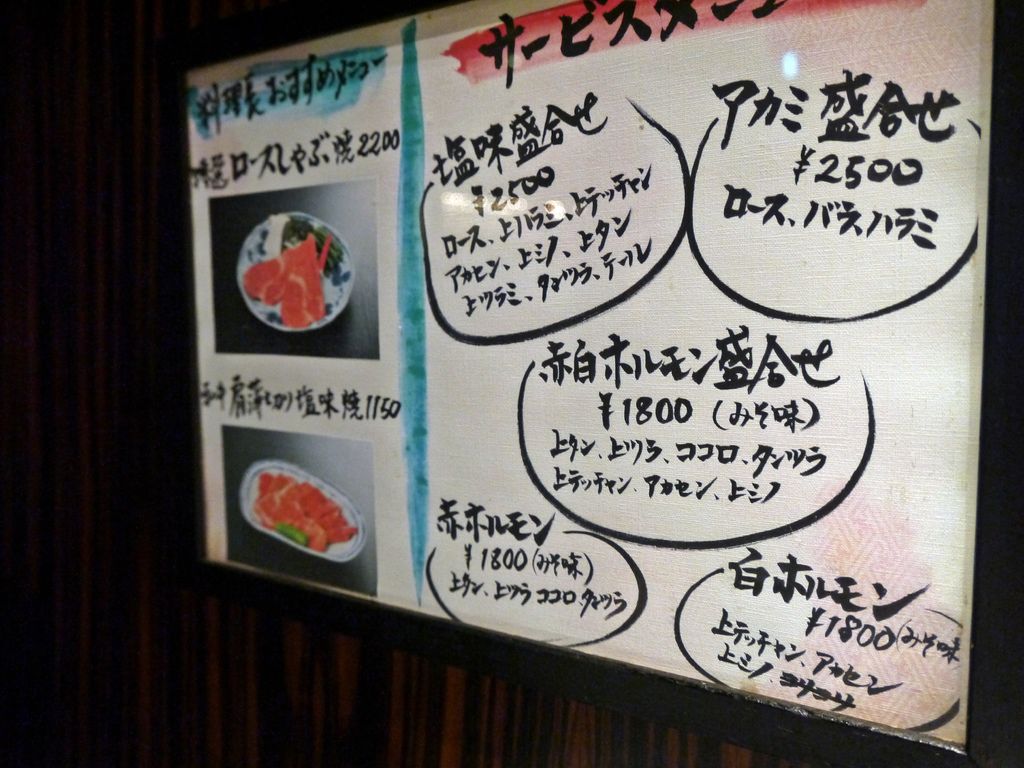 料理長おすすめメニュー
ロースしゃぶ焼2200
肩薄切り塩味焼1150
サービスメニュー
塩味盛合せ
¥2500
ロース、上ハラミ、上テッチャン
アカセン、上ミノ、上タン
上ツラミ、タンツラ、テール
アカミ盛合せ
¥2500
ロース、バラ、ハラミ
赤白ホルモン盛合せ
¥1800(みそ味)
上タン、上ツラ、ココロ、タンツラ
上テッチャン、アカセン、上ミノ
赤ホルモン
¥1800(みそ味)
上タン、上ツラ ココロ、タンツラ
白ホルモン
¥1800(みそ味
上テッチャン、アカセン
上ミノ、